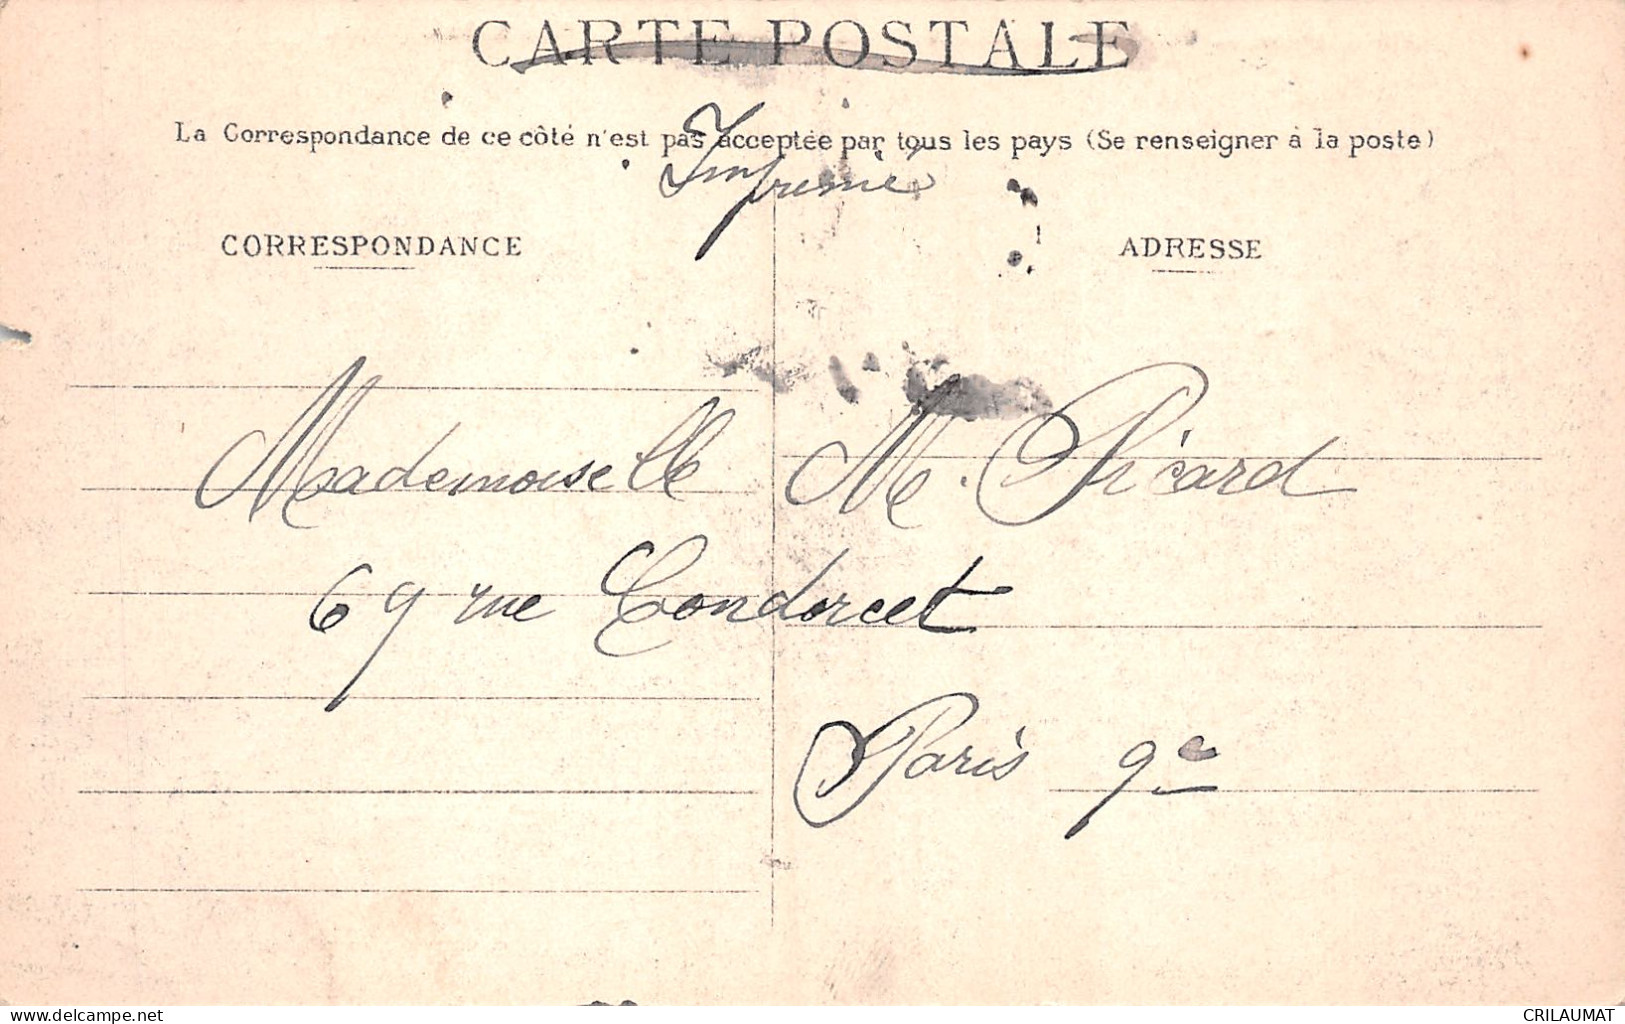 CARTE POSTALE
La Correspondance de ce côté n'est pas acceptée par tous les pays (Se renseigner à la poste)
Imprimé
CORRESPONDANCE
ADRESSE
Mademoiselle M. Picard
69 rue Condorcet
Paris 9e
www.delcampe.net
CRILAUMAT